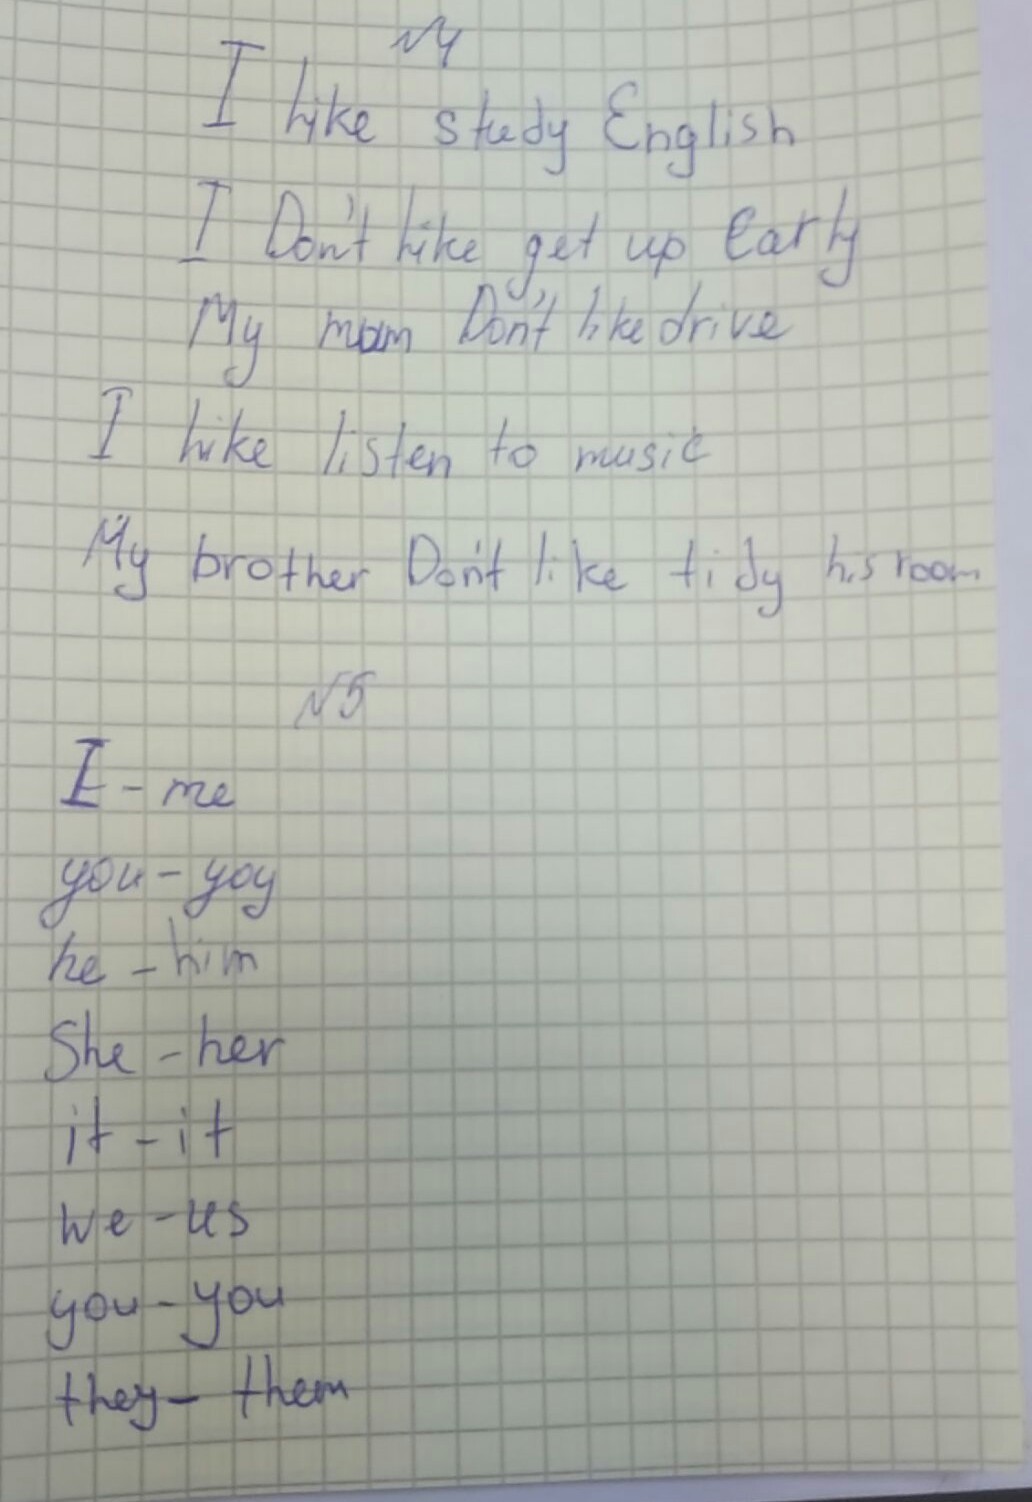 №4
I like study English
I Don't like get up Early
My mom Don't like drive
I like listen to music
My brother Don't like tidy his room
№5
I - me
you - yoy
he - him
She - her
it - it
we - us
you - you
they - them